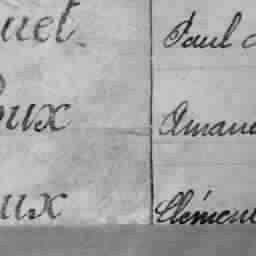 uet Paul
oux Aman
ux Clémen